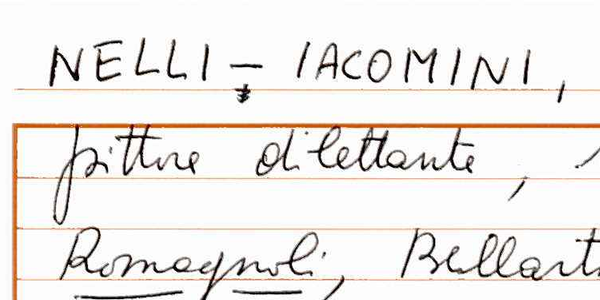 NELLI - IACOMINI,
pittore dilettante,
Romagnoli, Bellart